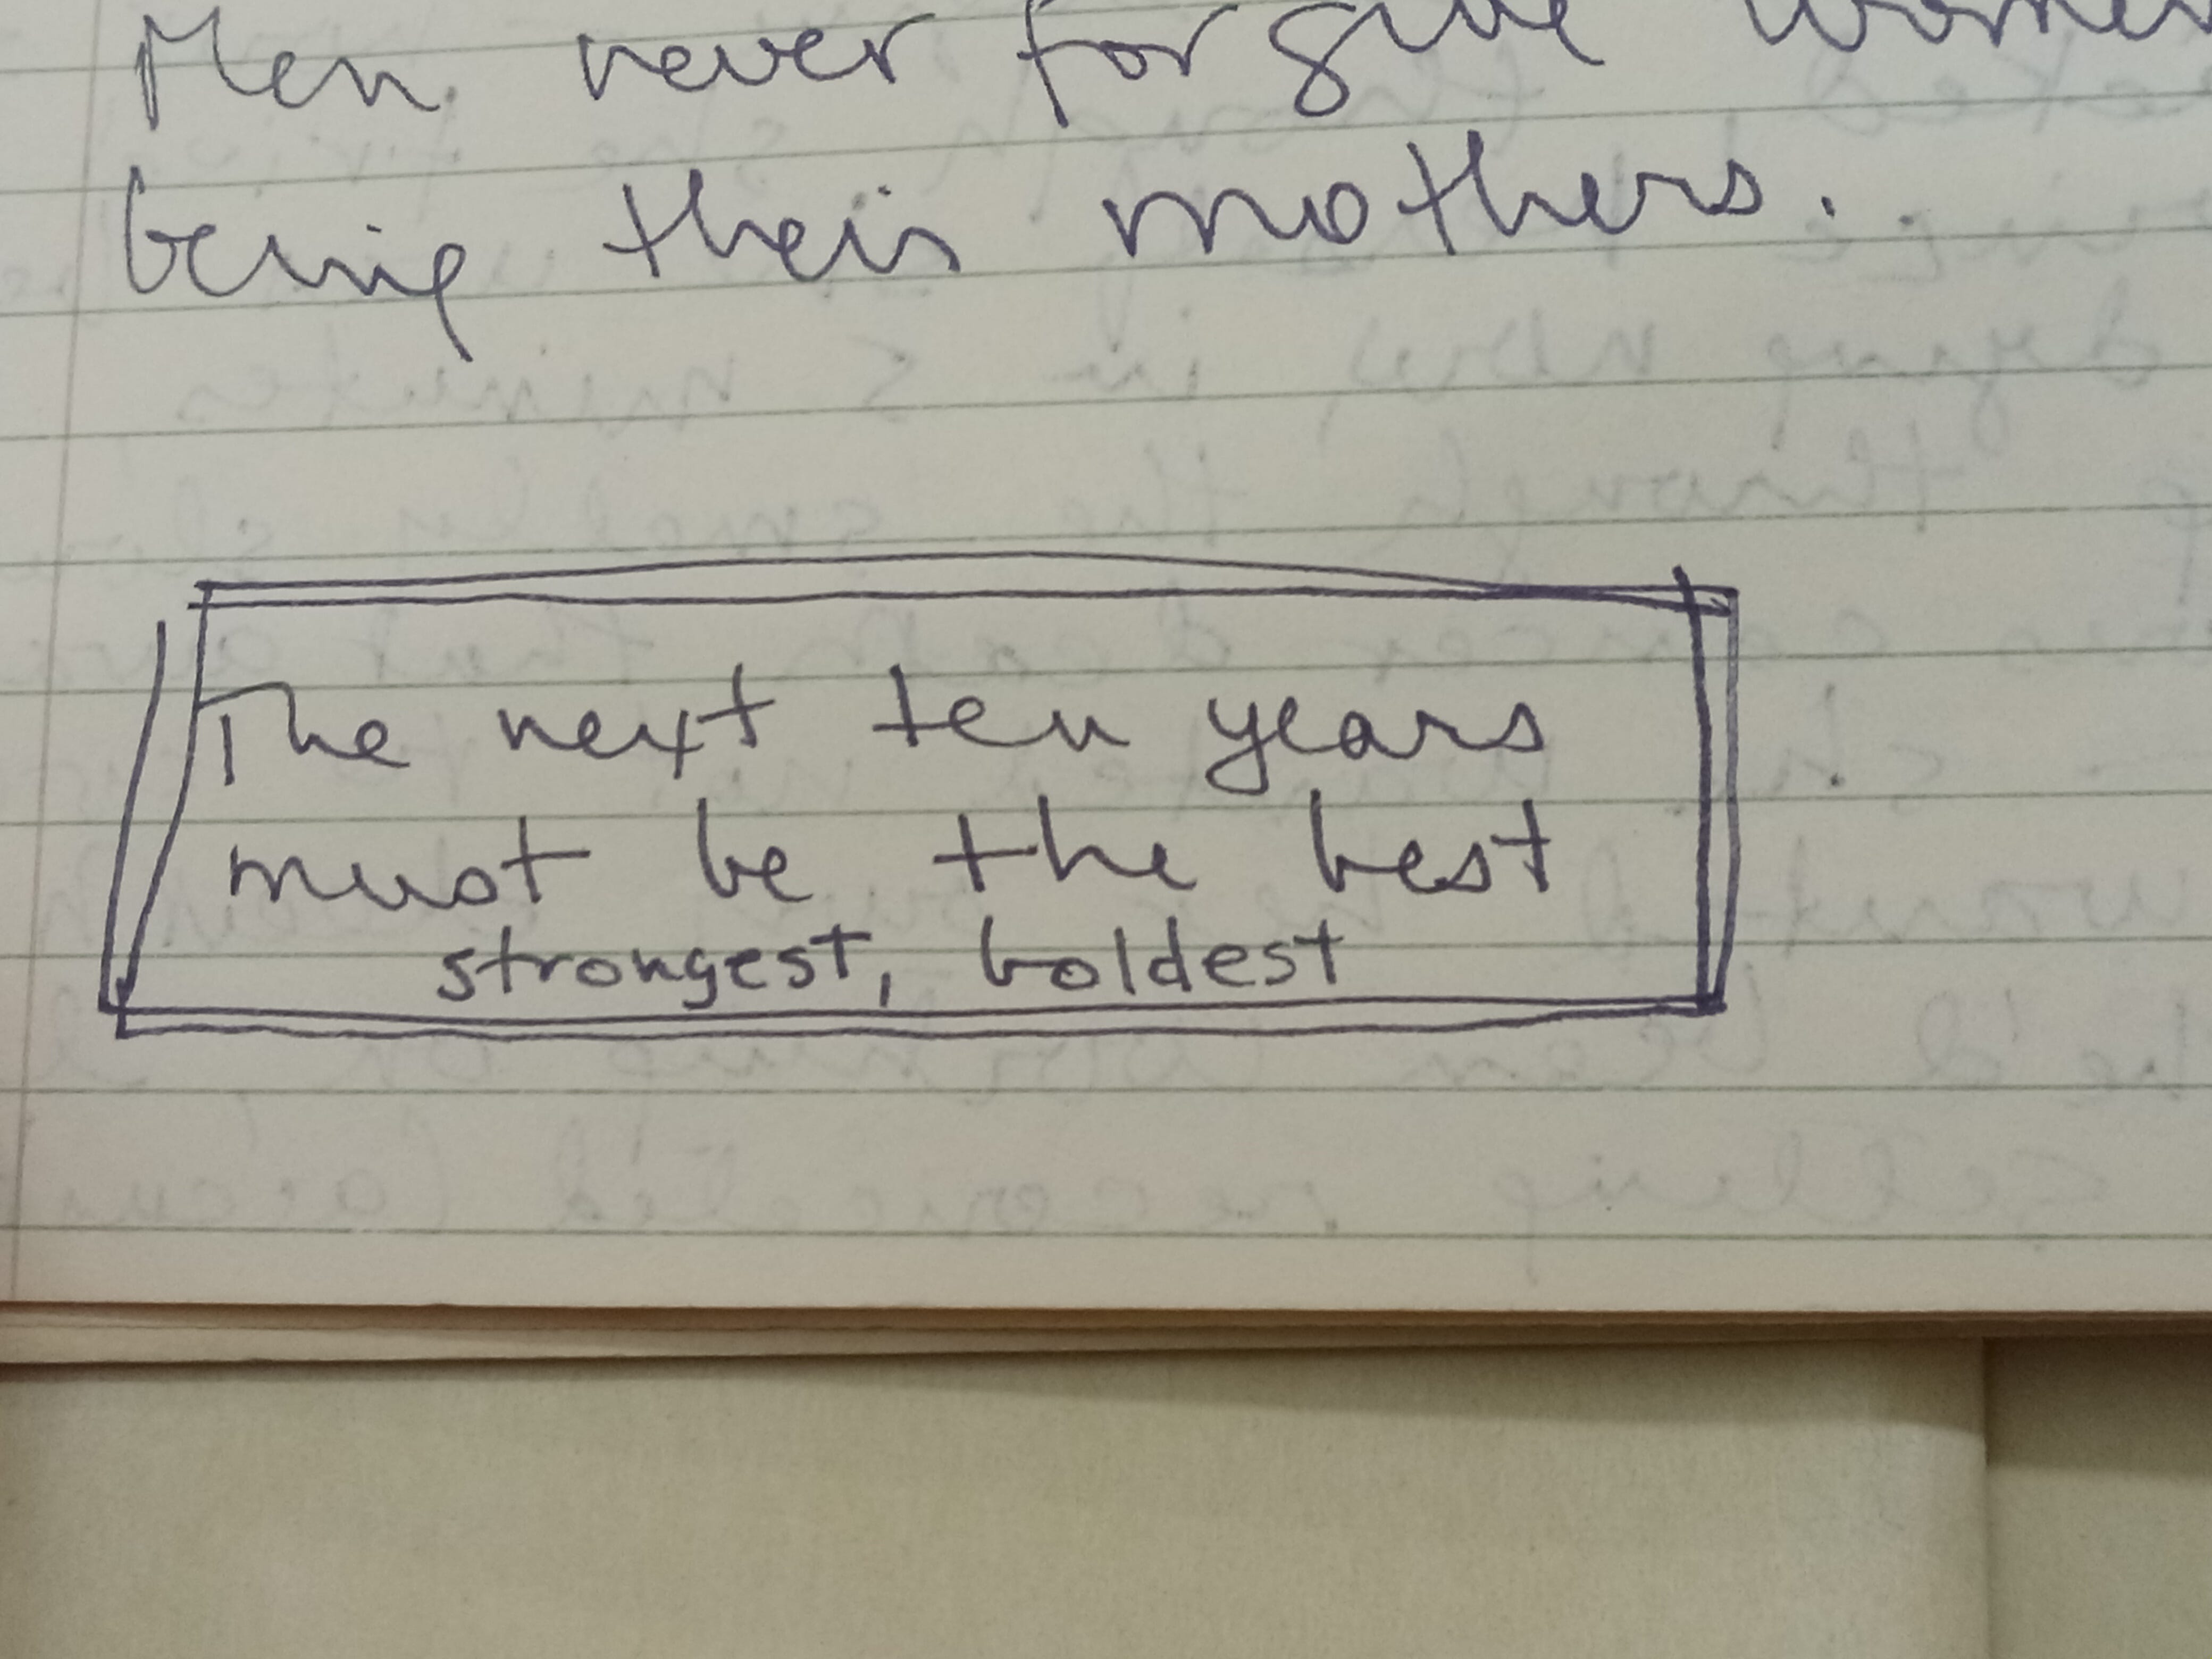 Men never forgive women
being their mothers.
The next ten years
must be the best
strongest, boldest